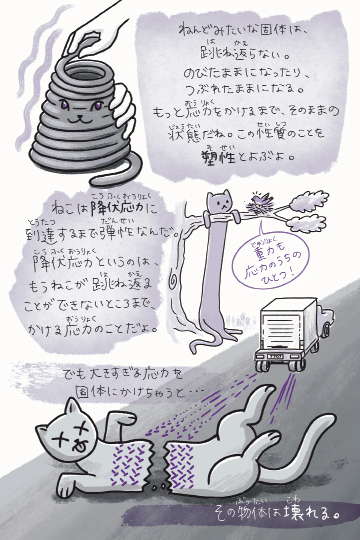 ねんどみたいな固体は、
跳ね返らない。
のびたままになったり、
つぶれたままになる。
もっと応力をかけるまで、そのままの
状態だね。この性質のことを
塑性とよぶよ。
ねこは降伏応力に
到達するまで弾性なんだ。
降伏応力というのは、
もうねこが跳ね返る
ことができないところまで、
かける応力のことだよ。
重力も
応力のうちの
ひとつ！
でも大きすぎる応力を
固体にかけちゃうと…
その物体は壊れる。